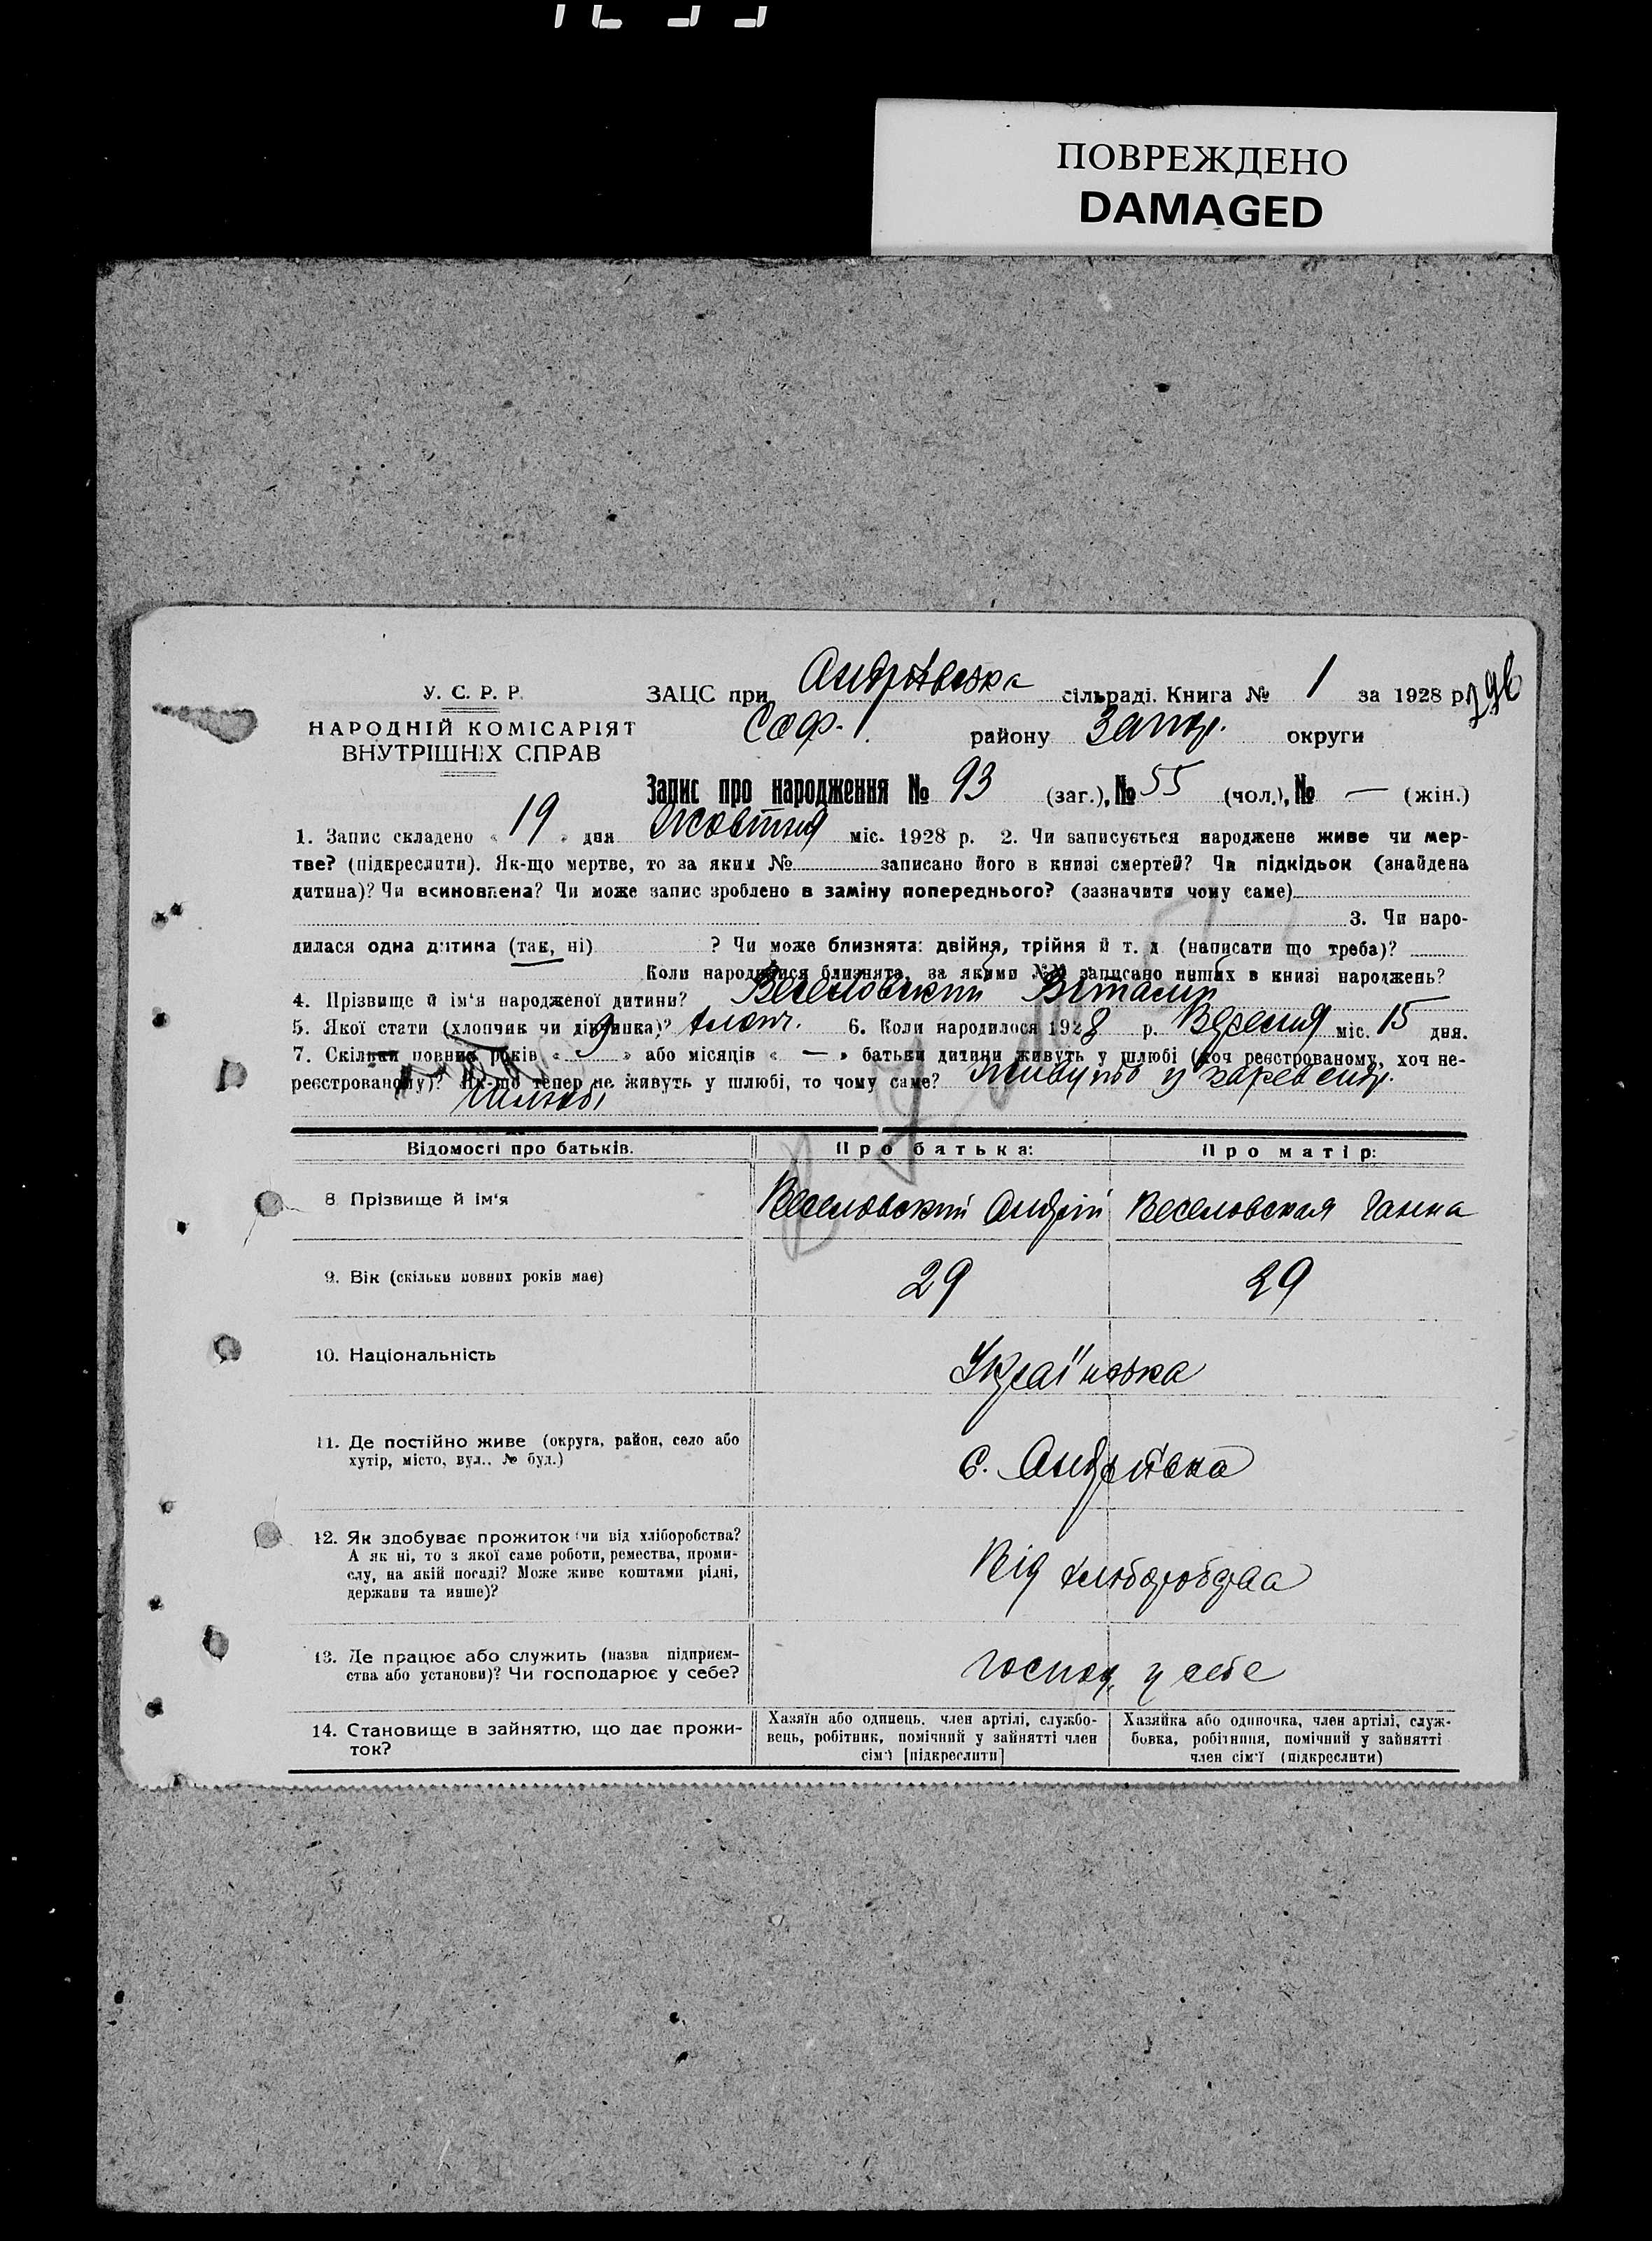 ПОВРЕЖДЕНО
DAMAGED
У. С. Р. Р.
НАРОДНІЙ КОМІСАРІЯТ
ВНУТРІШНІХ СПРАВ
ЗАЦС при Андріївська сільраді. Книга № 1 за 1928 р.
Соф. району Запор. округи
Запис про народження № 93 (заг.), № 55 (чол.), № — (жін.)
1. Запис складено « 19 » дня Жовтня міс. 1928 р. 2. Чи записується народжене живе чи мер-
тве? (підкреслити). Як-що мертве, то за яким № записано його в книзі смертей? Чи підкідьок (знайдена
дитина)? Чи всиновлена? Чи може запис зроблено в заміну попереднього? (зазначити чому саме)
3. Чи наро-
дилася одна дитина (так, ні) ? Чи може близнята: двійня, трійня й т. д. (написати що треба)?
Коли народилися близнята, за якими №№ записано инших в книзі народжень?
4. Прізвище й ім'я народженої дитини? Веселовський Віталій
5. Якої стати (хлопчик чи дівчинка)? хлопч. 6. Коли народилося 1928 р. Вересня міс. 15 дня.
7. Скільки повних років « 9 » або місяців « — » батьки дитини живуть у шлюбі (хоч реєстрованому, хоч не-
реєстрованому)? Як-що тепер не живуть у шлюбі, то чому саме? Живуть у
шлюбі
Відомості про батьків.
Про батька:
Про матір:
8. Прізвище й ім'я
Веселовський Андрій
Веселовская Ганна
9. Вік (скільки повних років має)
29
29
10. Національність
Українська
11. Де постійно живе (округа, район, село або
хутір, місто, вул., № буд.)
с. Андріївка
12. Як здобуває прожиток (чи від хліборобства?
А як ні, то з якої саме роботи, ремества, проми-
слу, на якій посаді? Може живе коштами рідні,
держави та инше)?
Від хліборобства
13. Де працює або служить (назва підприєм-
ства або установи)? Чи господарює у себе?
господ. у себе
14. Становище в зайняттю, що дає прожи-
ток?
Хазяїн або одинець, член артілі, службо-
вець, робітник, помічний у зайнятті член
сім'ї [підкреслити]
Хазяйка або одиночка, член артілі, служ-
бовка, робітниця, помічний у зайнятті
член сім'ї (підкреслити)